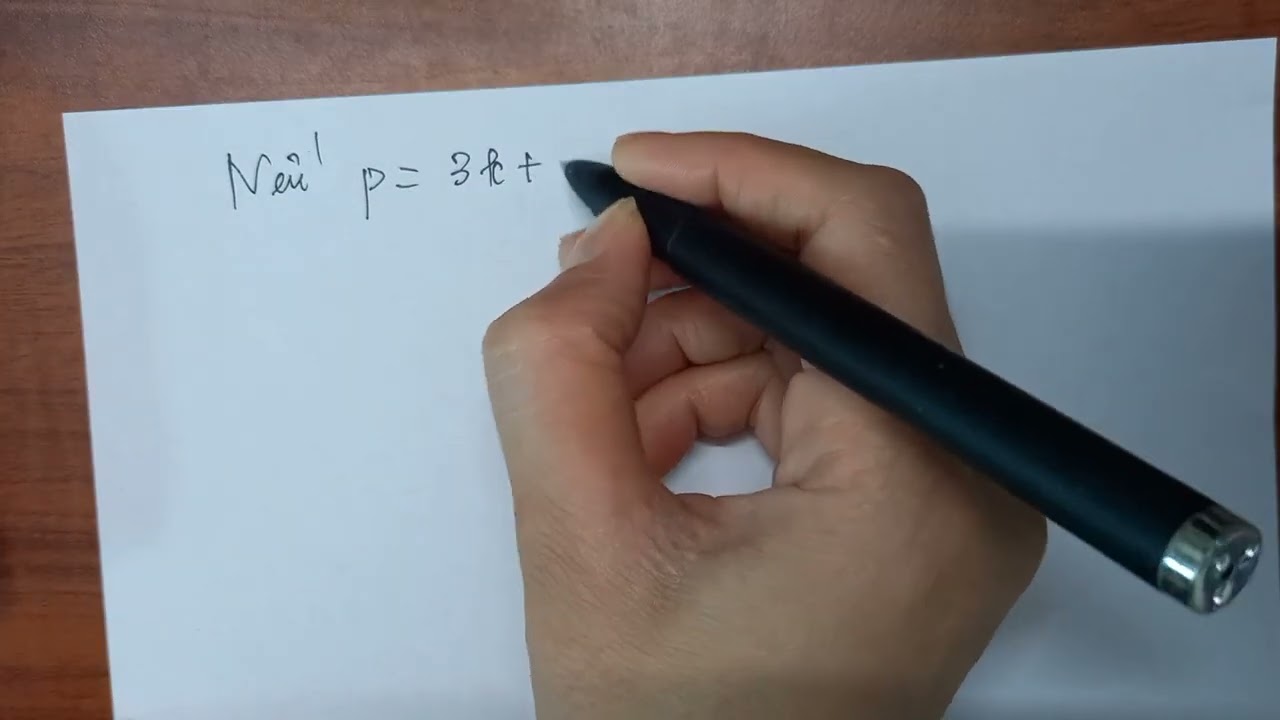 Nếu p = 3k +